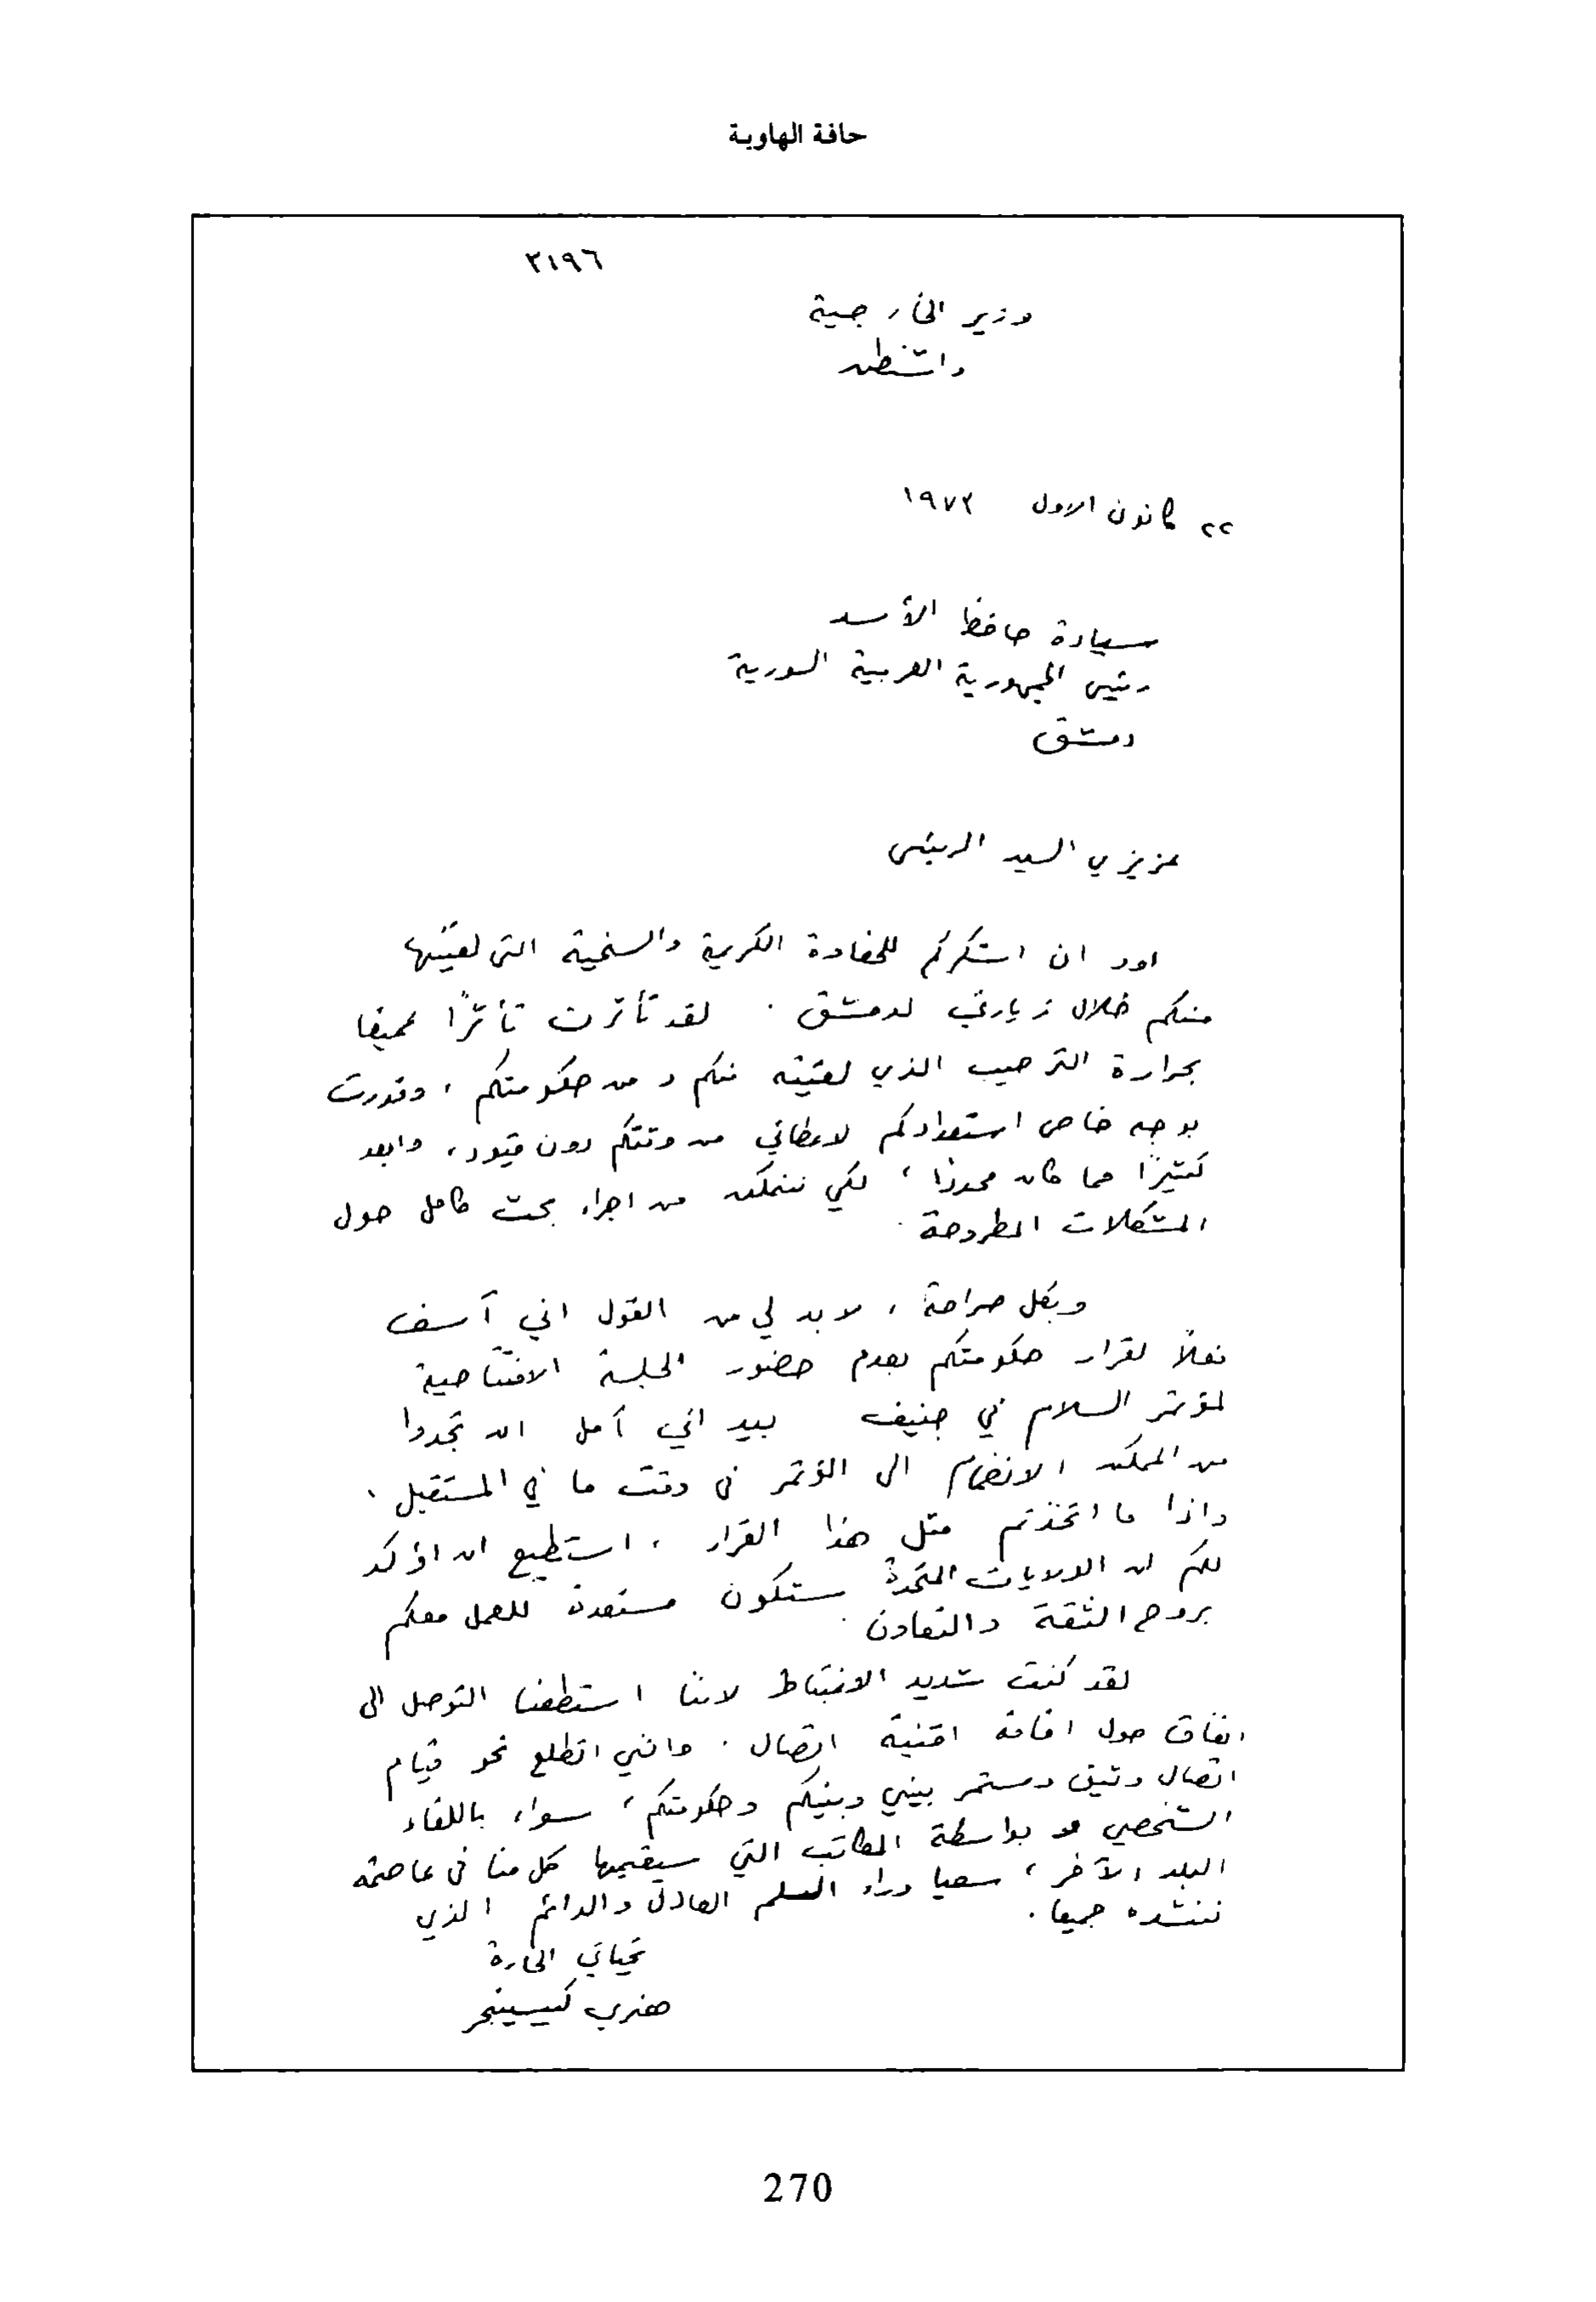 حافة الهاوية
٣١٩٦
وزير الخارجية
واشنطن
٢٢ كانون الاول ١٩٧٣
سيادة حافظ الأسد
رئيس الجمهورية العربية السورية
دمشق
عزيزي السيد الرئيس
اود ان اشكركم للحفاوة الكريمة والسخية التي لقيتها
منكم خلال زيارتي لدمشق. لقد تأثرت تأثرًا عميقا
بحرارة الترحيب الذي لقيته منكم ومن حكومتكم، وقدرت
بوجه خاص استعدادكم لاعطائي من وقتكم دون قيود، وابعد
كثيرًا مما كان محددا، لكي نتمكن من اجراء بحث كامل حول
المشكلات المطروحة.
وبكل صراحة، لا بد لي من القول اني آسف
فعلاً لقرار حكومتكم بعدم حضور الجلسة الافتتاحية
لمؤتمر السلام في جنيف بيد اني آمل ان تجدوا
من الممكن الانضمام الى المؤتمر في وقت ما في المستقبل.
واذا ما اتخذتم مثل هذا القرار، استطيع ان اؤكد
لكم ان الولايات المتحدة ستكون مستعدة للعمل معكم
بروح الثقة والتعاون.
لقد كنت شديد الاغتباط لاننا استطعنا التوصل الى
اتفاق حول اقامة اقنية اتصال. وانني اتطلع نحو قيام
اتصال وثيق ومستمر بيني وبينكم وحكومتكم، سواء باللقاء
الشخصي او بواسطة المكاتب التي سيقيمها كل منا في عاصمة
البلد الآخر، سعيا وراء السلم العادل والدائم الذي
ننشده جميعا.
تحياتي الحارة
هنري كيسينجر
270